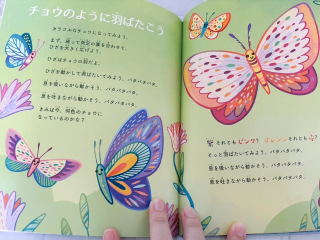 チョウのように羽ばたこう
カラフルなチョウになってみよう。
まず、座って両足の裏を合わせて、
ひざを大きく広げよう。
ひざはチョウの羽だよ。
ひざを動かして羽ばたいてみよう、パタパタパタ。
息を吸いながら動かそう、パタパタパタ、
息を吐きながら動かそう、パタパタパタ。
きみは今、何色のチョウに
なっているのかな?
それともピンク? オレンジ それとも
そっと羽ばたいてみよう、パタパタパタ、
息を吸いながら動かそう、パタパタパタ、
息を吐きながら動かそう、パタパタパタ。